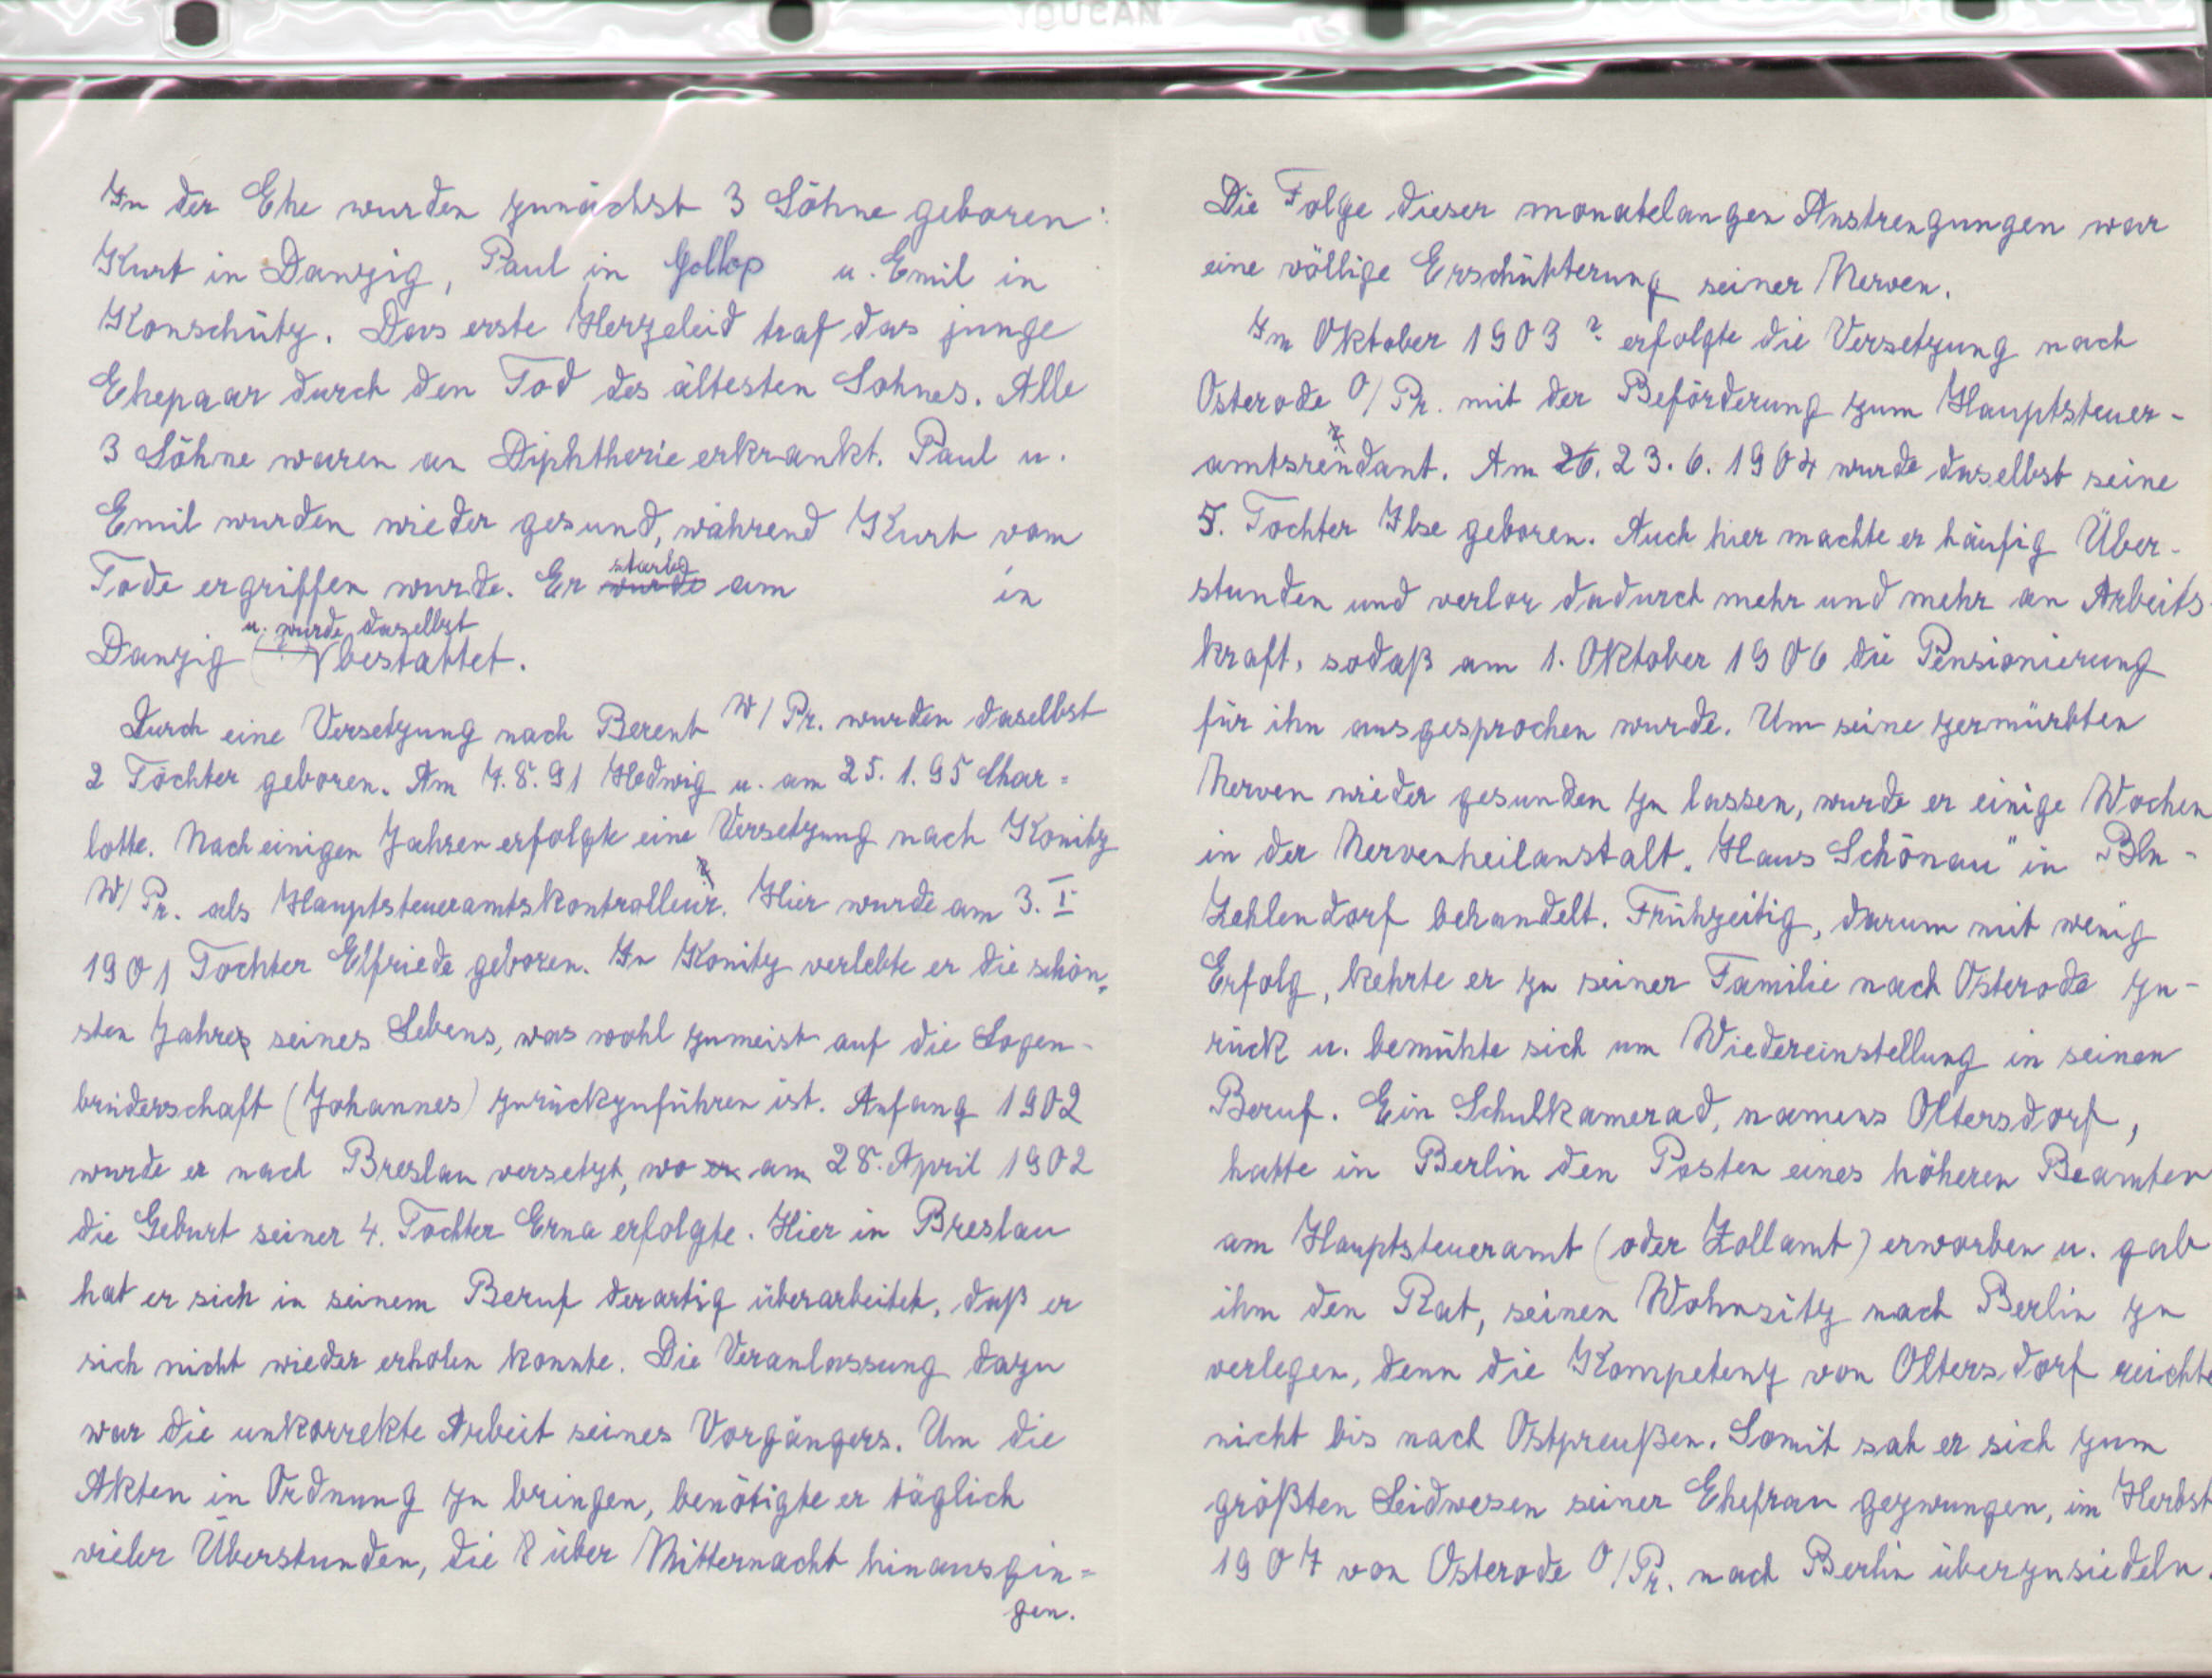 TOUCAN
In der Ehe wurden zunächst 3 Söhne geboren:
Kurt in Danzig, Paul in Gollop u. Emil in
Konschütz. Das erste Herzeleid traf das junge
Ehepaar durch den Tod des ältesten Sohnes. Alle
3 Söhne waren an Diphtherie erkrankt. Paul u.
Emil wurden wieder gesund, während Kurt vom
Tode ergriffen wurde. Er wurde starb am in
Danzig u. wurde daselbst bestattet.
Durch eine Versetzung nach Berent W/Pr. wurden daselbst
2 Töchter geboren. Am 7.8.91 Hedwig u. am 25.1.95 Char=
lotte. Nach einigen Jahren erfolgte eine Versetzung nach Konitz
W/Pr. als Hauptsteueramtskontrolleur. Hier wurde am 3. I
1901 Tochter Elfriede geboren. In Konitz verlebte er die schön=
sten Jahre seines Lebens, was wohl zumeist auf die Logen-
brüderschaft (Johannes) zurückzuführen ist. Anfang 1902
wurde er nach Breslau versetzt, wo er am 28. April 1902
die Geburt seiner 4. Tochter Erna erfolgte. Hier in Breslau
hat er sich in seinem Beruf derartig überarbeitet, daß er
sich nicht wieder erholen konnte. Die Veranlassung dazu
war die unkorrekte Arbeit seines Vorgängers. Um die
Akten in Ordnung zu bringen, benötigte er täglich
vieler Überstunden, die über Mitternacht hinausgin=
gen.
Die Folge dieser monatelangen Anstrengungen war
eine völlige Erschütterung seiner Nerven.
Im Oktober 1903 ? erfolgte die Versetzung nach
Osterode O/Pr. mit der Beförderung zum Hauptsteuer-
amtsrendant. Am 26. 23.6.1904 wurde daselbst seine
5. Tochter Ilse geboren. Auch hier machte er häufig Über-
stunden und verlor dadurch mehr und mehr an Arbeits-
kraft, sodaß am 1. Oktober 1906 die Pensionierung
für ihn ausgesprochen wurde. Um seine zermürbten
Nerven wieder gesunden zu lassen, wurde er einige Wochen
in der Nervenheilanstalt „Haus Schönau" in Bln-
Zehlendorf behandelt. Frühzeitig, darum mit wenig
Erfolg, kehrte er zu seiner Familie nach Osterode zu-
rück u. bemühte sich um Wiedereinstellung in seinen
Beruf. Ein Schulkamerad, namens Oltersdorf,
hatte in Berlin den Posten eines höheren Beamten
am Hauptsteueramt (oder Zollamt) erworben u. gab
ihm den Rat, seinen Wohnsitz nach Berlin zu
verlegen, denn die Kompetenz von Oltersdorf reichte
nicht bis nach Ostpreußen. Somit sah er sich zum
größten Leidwesen seiner Ehefrau gezwungen, im Herbst
1907 von Osterode O/Pr. nach Berlin überzusiedeln.